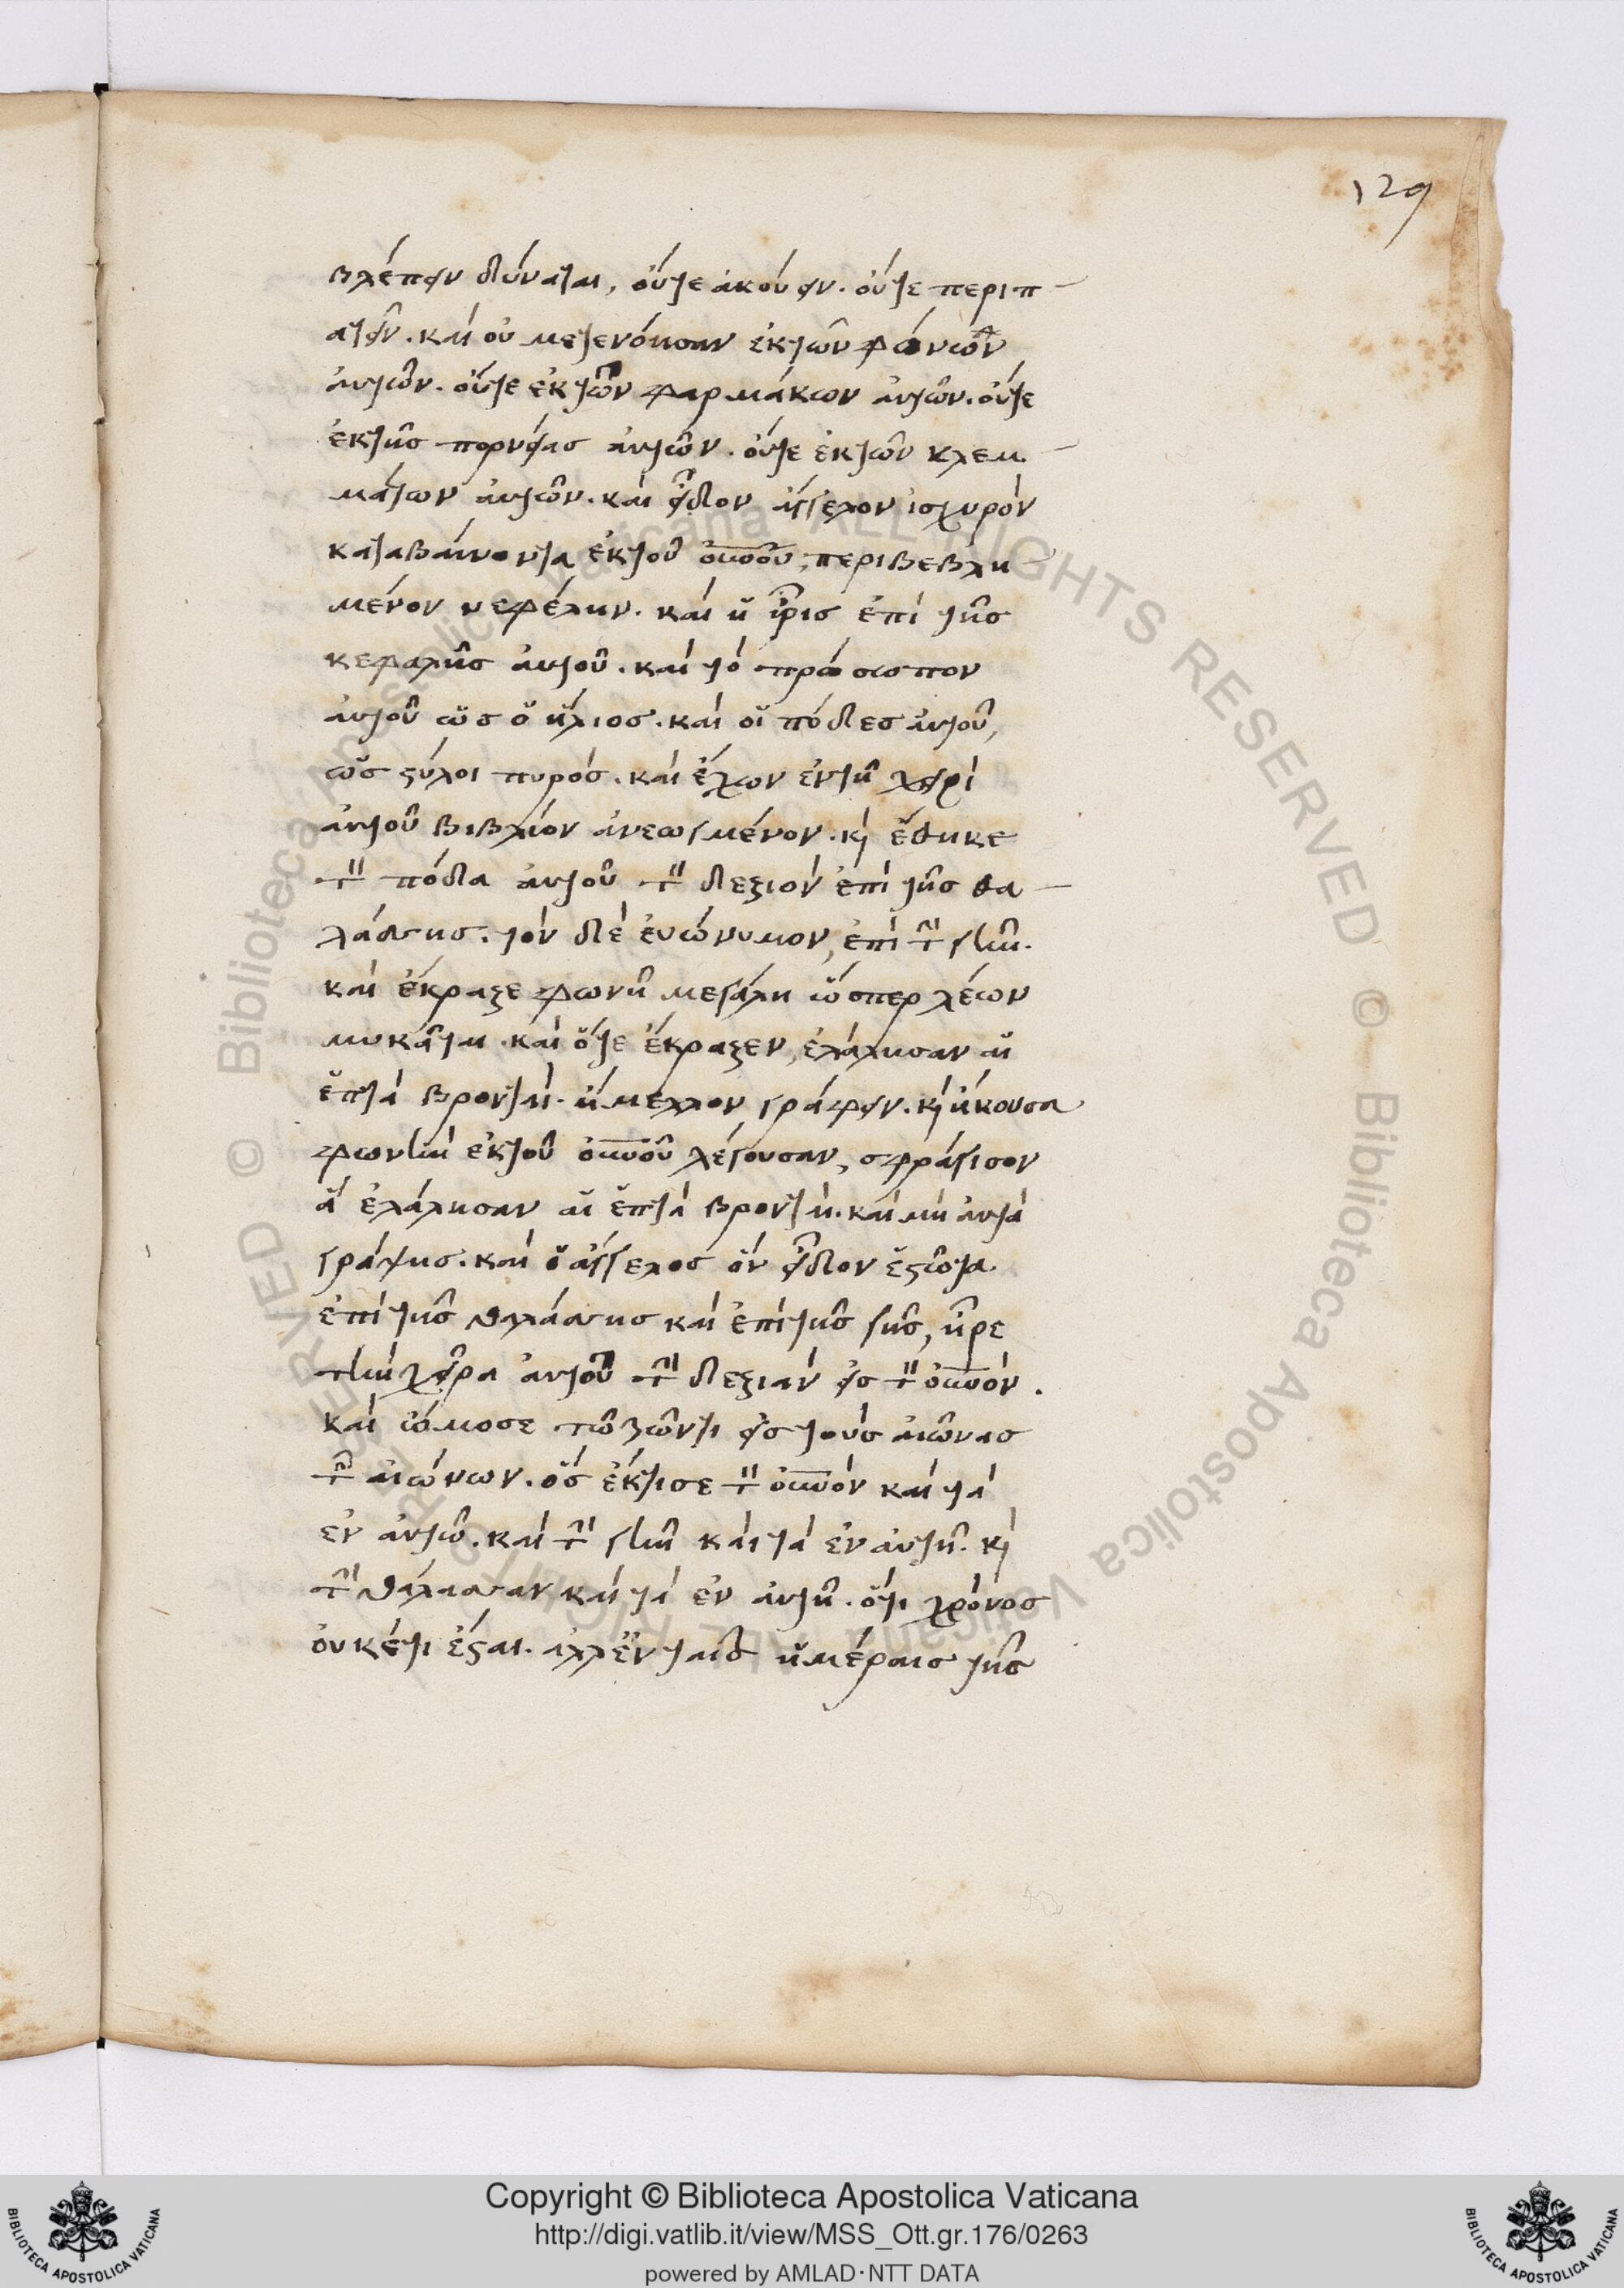 129
βλέπειν δύναται, οὔτε ἀκούειν. οὔτε περιπ
ατεῖν. καὶ οὐ μετενόησαν ἐκτῶν φόνων
ἀυτῶν. οὔτε ἐκτῶν φαρμάκων ἀυτῶν. οὔτε
ἐκτῆς πορνείας ἀυτῶν. οὔτε ἐκτῶν κλεμ
μάτων ἀυτῶν. καὶ εἶδον ἄγγελον ἰσχυρὸν
καταβαίνοντα ἐκτοῦ ὀυνοῦ, περιβεβλη
μένον νεφέλην. καὶ ἡ ἶρις ἐπὶ τῆς
κεφαλῆς ἀυτοῦ. καὶ τὸ πρόσωπον
ἀυτοῦ ὡς ὁ ἥλιος. καὶ οἱ πόδες ἀυτοῦ,
ὡς ςύλοι πυρός. καὶ ἔχων ἐντῆ χειρὶ
ἀυτοῦ βιβλίον ἀνεωγμένον. κὶ ἔθηκε
τὸν πόδα ἀυτοῦ τὸν δεξιὸν ἐπὶ τῆς θα
λάσσης. τὸν δὲ ἐυώνυμον, ἐπὶ τὴν γῆν.
καὶ ἔκραξε φωνῆ μεγάλη ὥσπερ λέων
μυκᾶται. καὶ ὅτε ἔκραξεν, ἐλάλησαν αἱ
ἑπτὰ βρονταὶ. ἤμελλον γράφειν. κὶ ἤκουσα
φωνὴν ἐκτοῦ ὀυνοῦ λέγουσαν, σφράγισον
ἃ ἐλάλησαν αἱ ἑπτὰ βρονταὶ. καὶ μὴ ἀυτὰ
γράψης. καὶ ὁ ἄγγελος ὃν εἶδον ἑςῶτα
ἐπὶ τῆς θαλάσσης καὶ ἐπὶ τῆς γῆς, ἦρε
τὴν χεῖρα ἀυτοῦ τὴν δεξιὰν εἰς τὸν ὀυνόν.
καὶ ὤμοσε τῶ ζῶντι εἰς τοὺς ἀιῶνας
τῶν αἰώνων. ὃς ἔκτισε τὸν ὀυνὸν καὶ τὰ
ἐν ἀυτῶ. καὶ τὴν γῆν καὶ τὰ ἐν ἀυτῆ. κὶ
τὴν θάλασσαν καὶ τὰ ἐν ἀυτῆ. ὅτι χρόνος
ὀυκέτι ἔςαι. ἀλλἐν ταῖς ἡμέραις τῆς
Copyright © Biblioteca Apostolica Vaticana
http://digi.vatlib.it/view/MSS_Ott.gr.176/0263
powered by AMLAD·NTT DATA